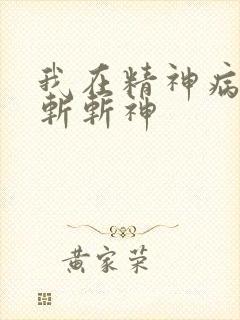 我在精神病
斩斩神
黄家荣